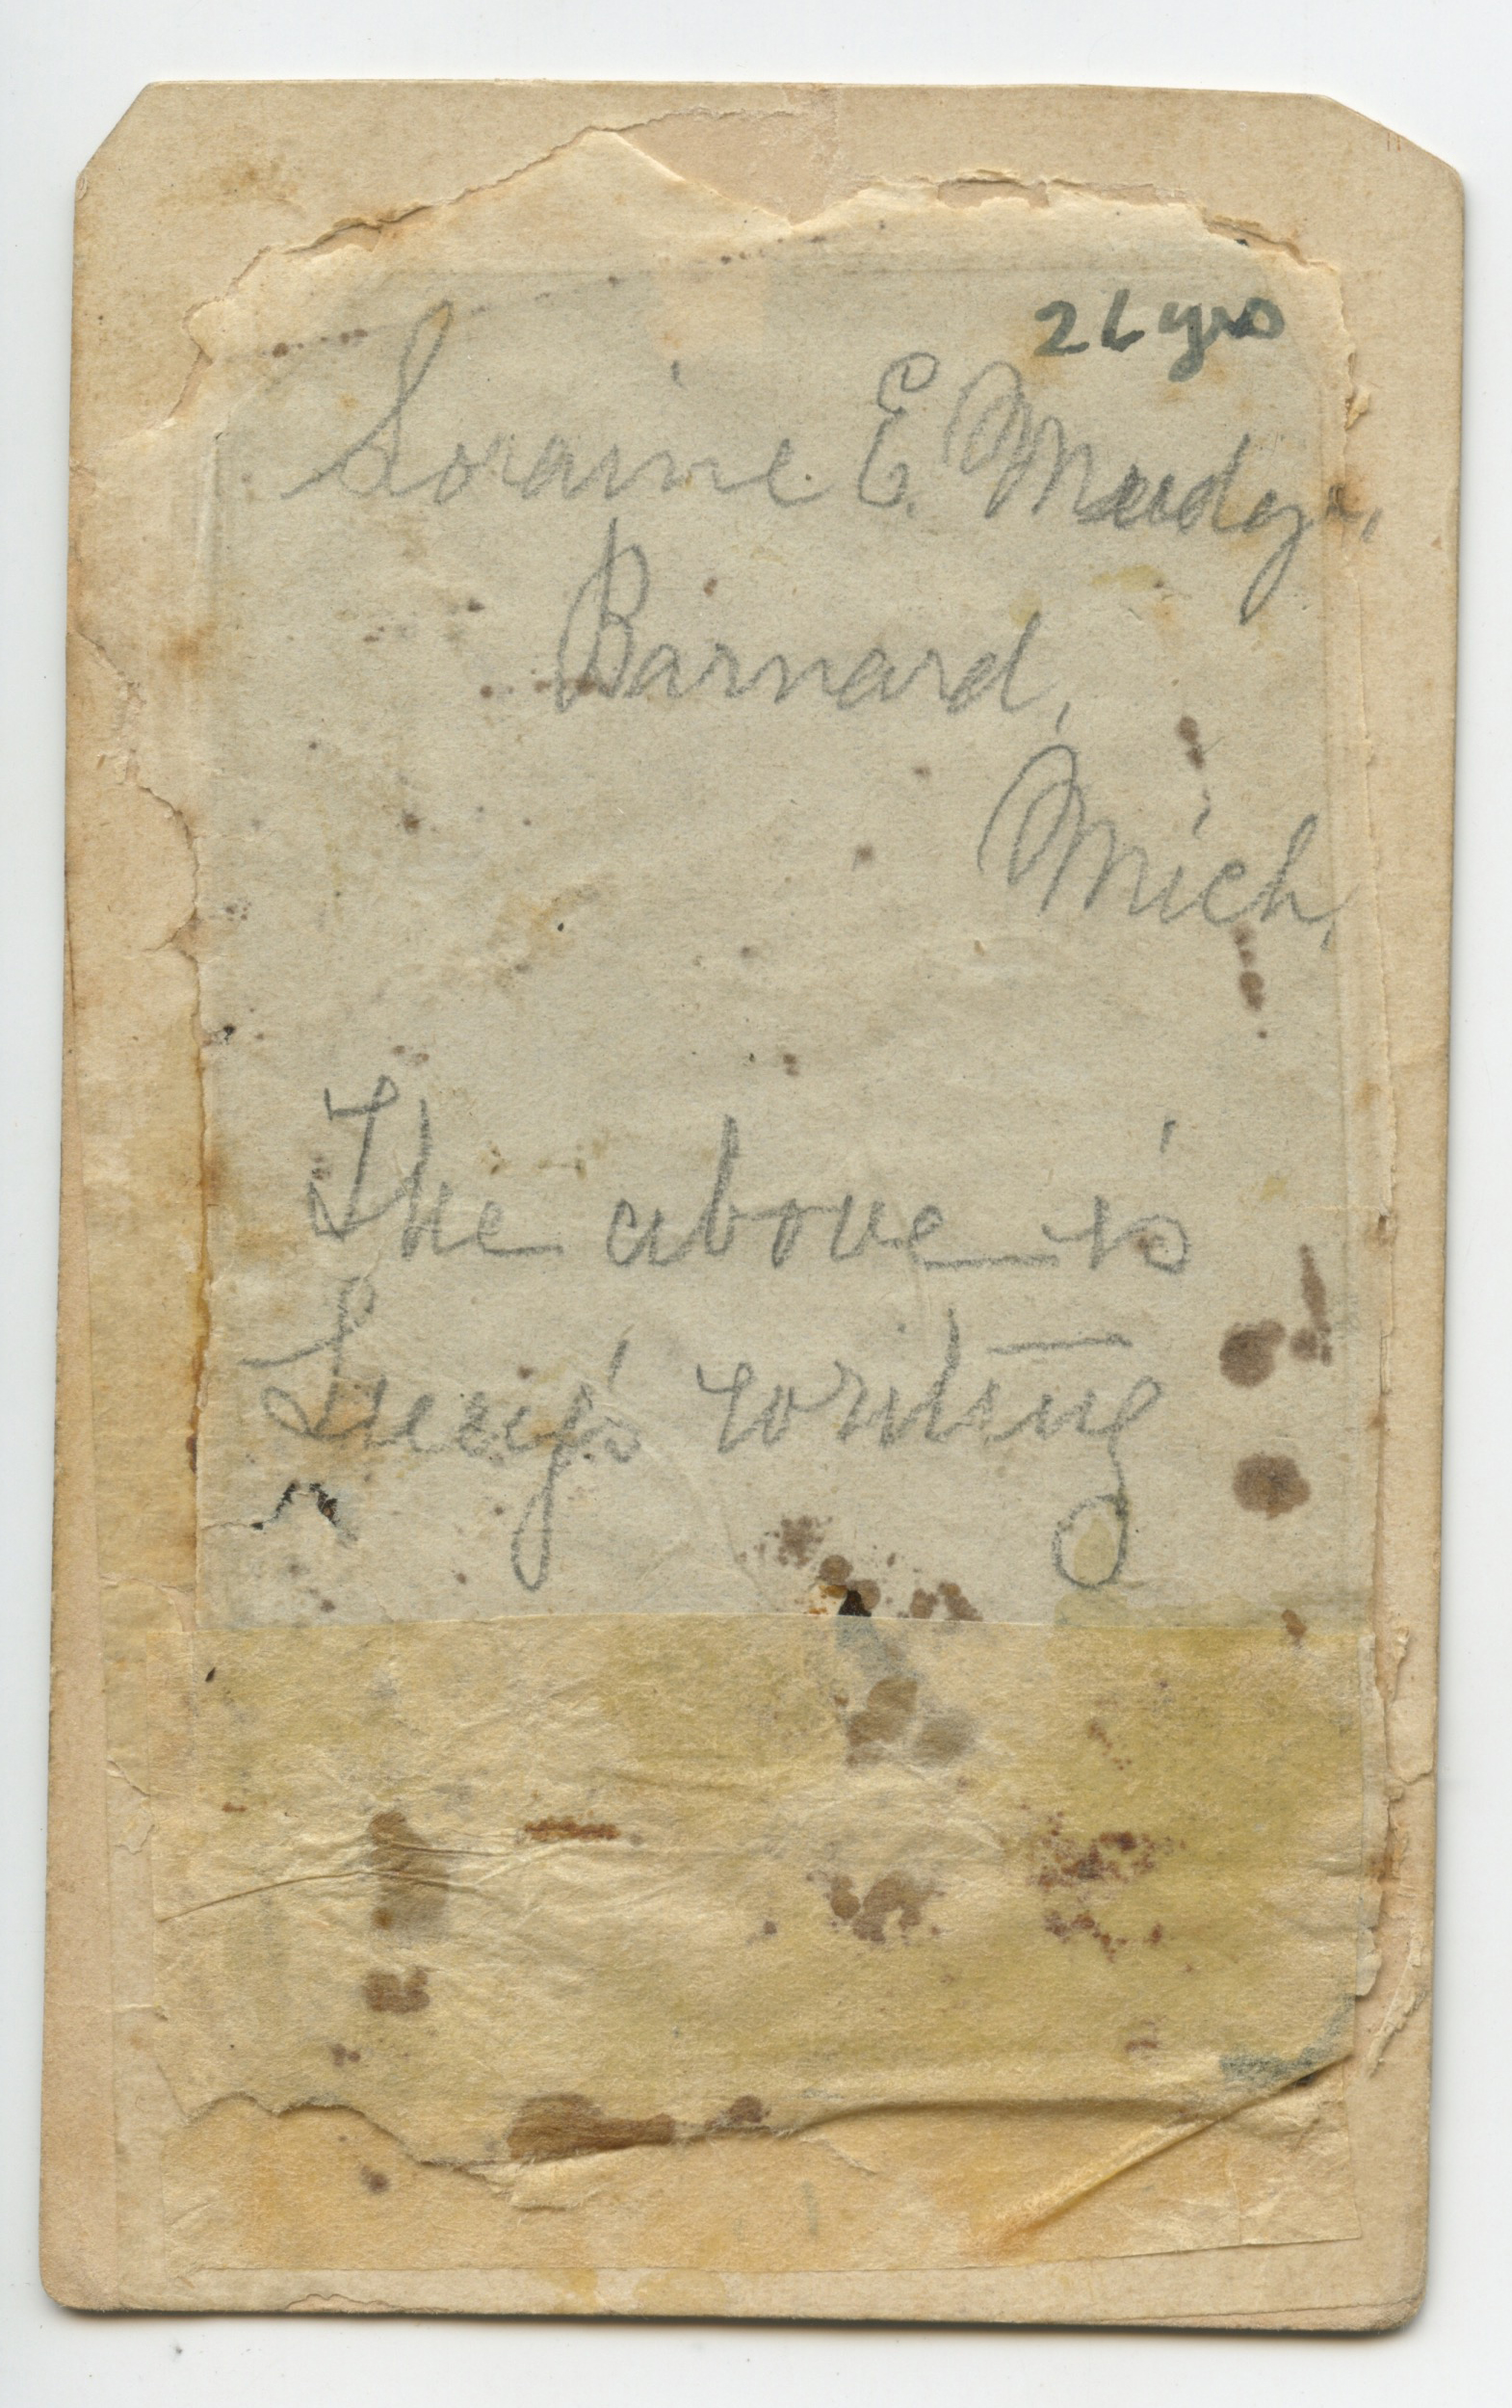 26 yrs
Loraine E. Mudge,
Barnard,
Mich,
The above is
Lucy's writing